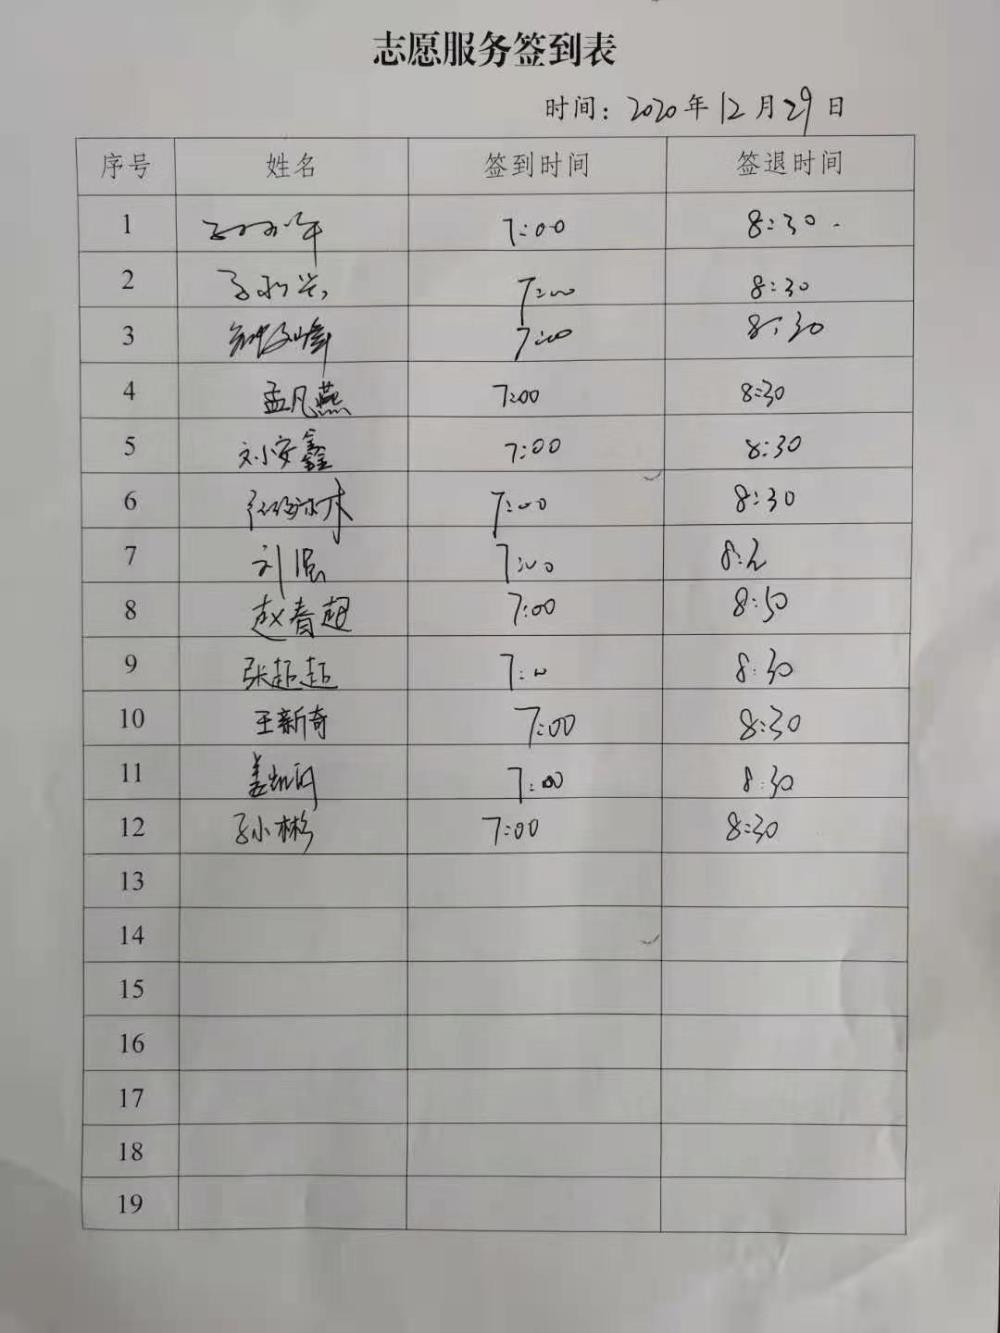 志愿服务签到表
时间：2020年12月29日
序号 姓名 签到时间 签退时间
1 7:00 8:30
2 7:00 8:30
3 7:00 8:30
4 孟凡燕 7:00 8:30
5 刘安鑫 7:00 8:30
6 7:00 8:30
7 7:00
8 赵春超 7:00
9 张超超 7:00 8:30
10 王新奇 7:00 8:30
11 7:00 8:30
12 孙小彬 7:00 8:30
13
14
15
16
17
18
19